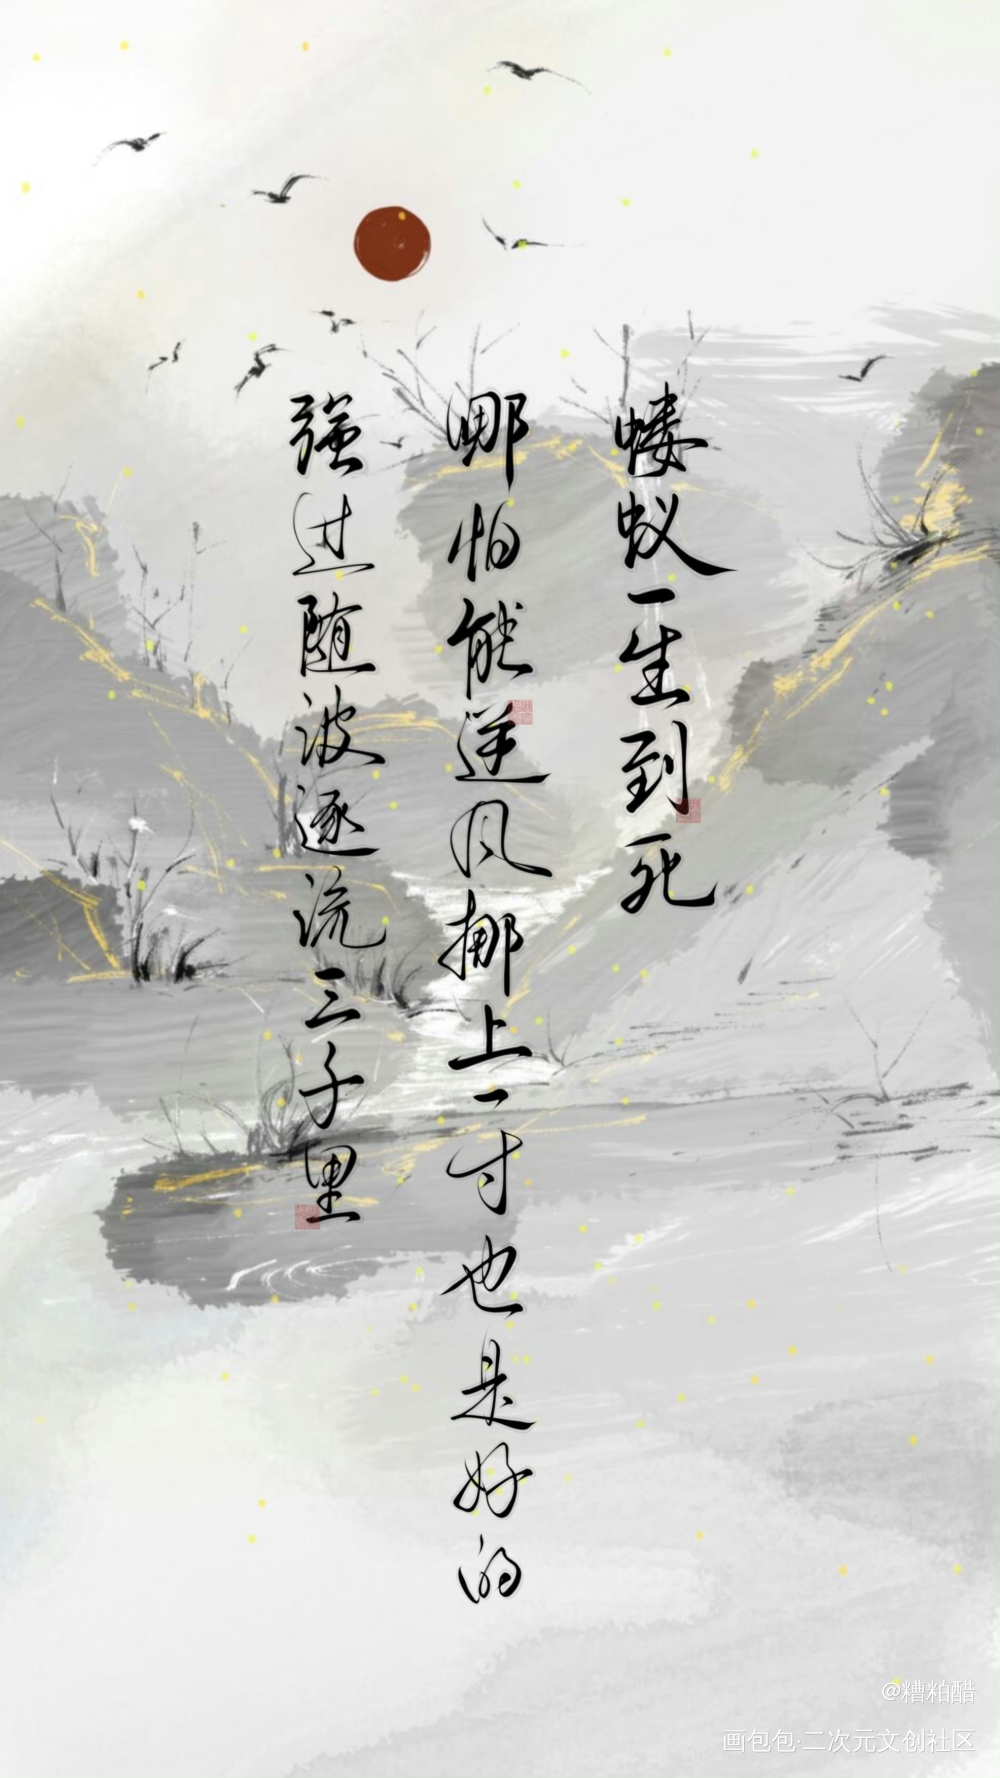 蝼蚁一生到死
哪怕能逆风挪上一寸也是好的
强过随波逐流三千里
@糟粕醋
画包包·二次元文创社区